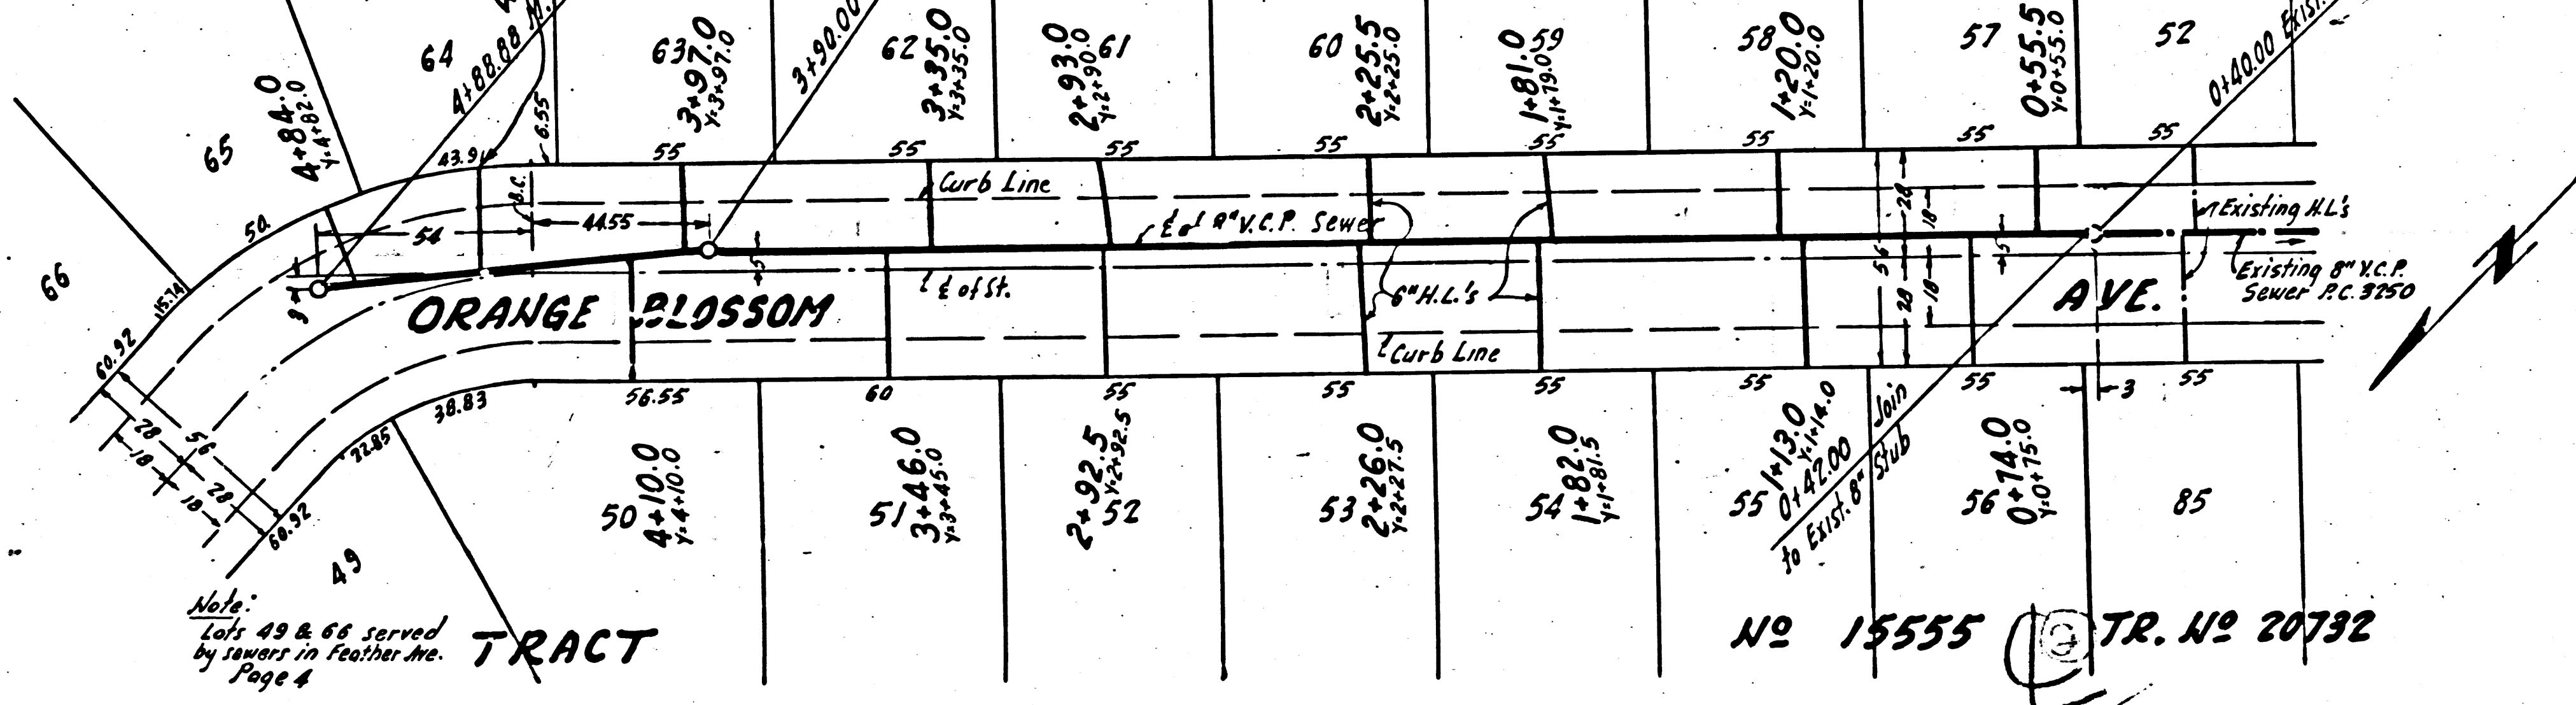 64
4+88.88 M.
63
3+97.0
Y=3+97.0
3+90.00
62
3+35.0
Y=3+35.0
2+93.0
Y=2+90.0
61
60
2+25.5
Y=2+25.0
1+81.0
Y=1+79.0
59
58
1+20.0
Y=1+20.0
57
0+55.5
Y=0+55.0
52
0+40.00 Exist.
65
4+84.0
Y=4+82.0
6.55
43.91
55
55
55
55
55
55
55
55
B.C.
Curb Line
50.
54
44.55
5
℄ of 8" V.C.P. Sewer
28
18
5
Existing H.L's
66
15.74
3
℄ of St.
6" H.L.'s
56
28
18
Existing 8" V.C.P.
Sewer P.C. 3250
ORANGE BLOSSOM
AVE.
N
Curb Line
60.92
28
56
18
28
18
60.92
22.85
38.83
56.55
60
55
55
55
55
55
3
55
49
50
4+10.0
Y=4+10.0
51
3+46.0
Y=3+45.0
2+92.5
Y=2+92.5
52
53
2+26.0
Y=2+27.5
54
1+82.0
Y=1+81.5
55
1+13.0
Y=1+14.0
0+42.00 Join
to Exist. 8" Stub
56
0+74.0
Y=0+75.0
85
Note:
Lots 49 & 66 served
by sewers in Feather Ave.
Page 4
TRACT
Nº 15555
TR. Nº 20732